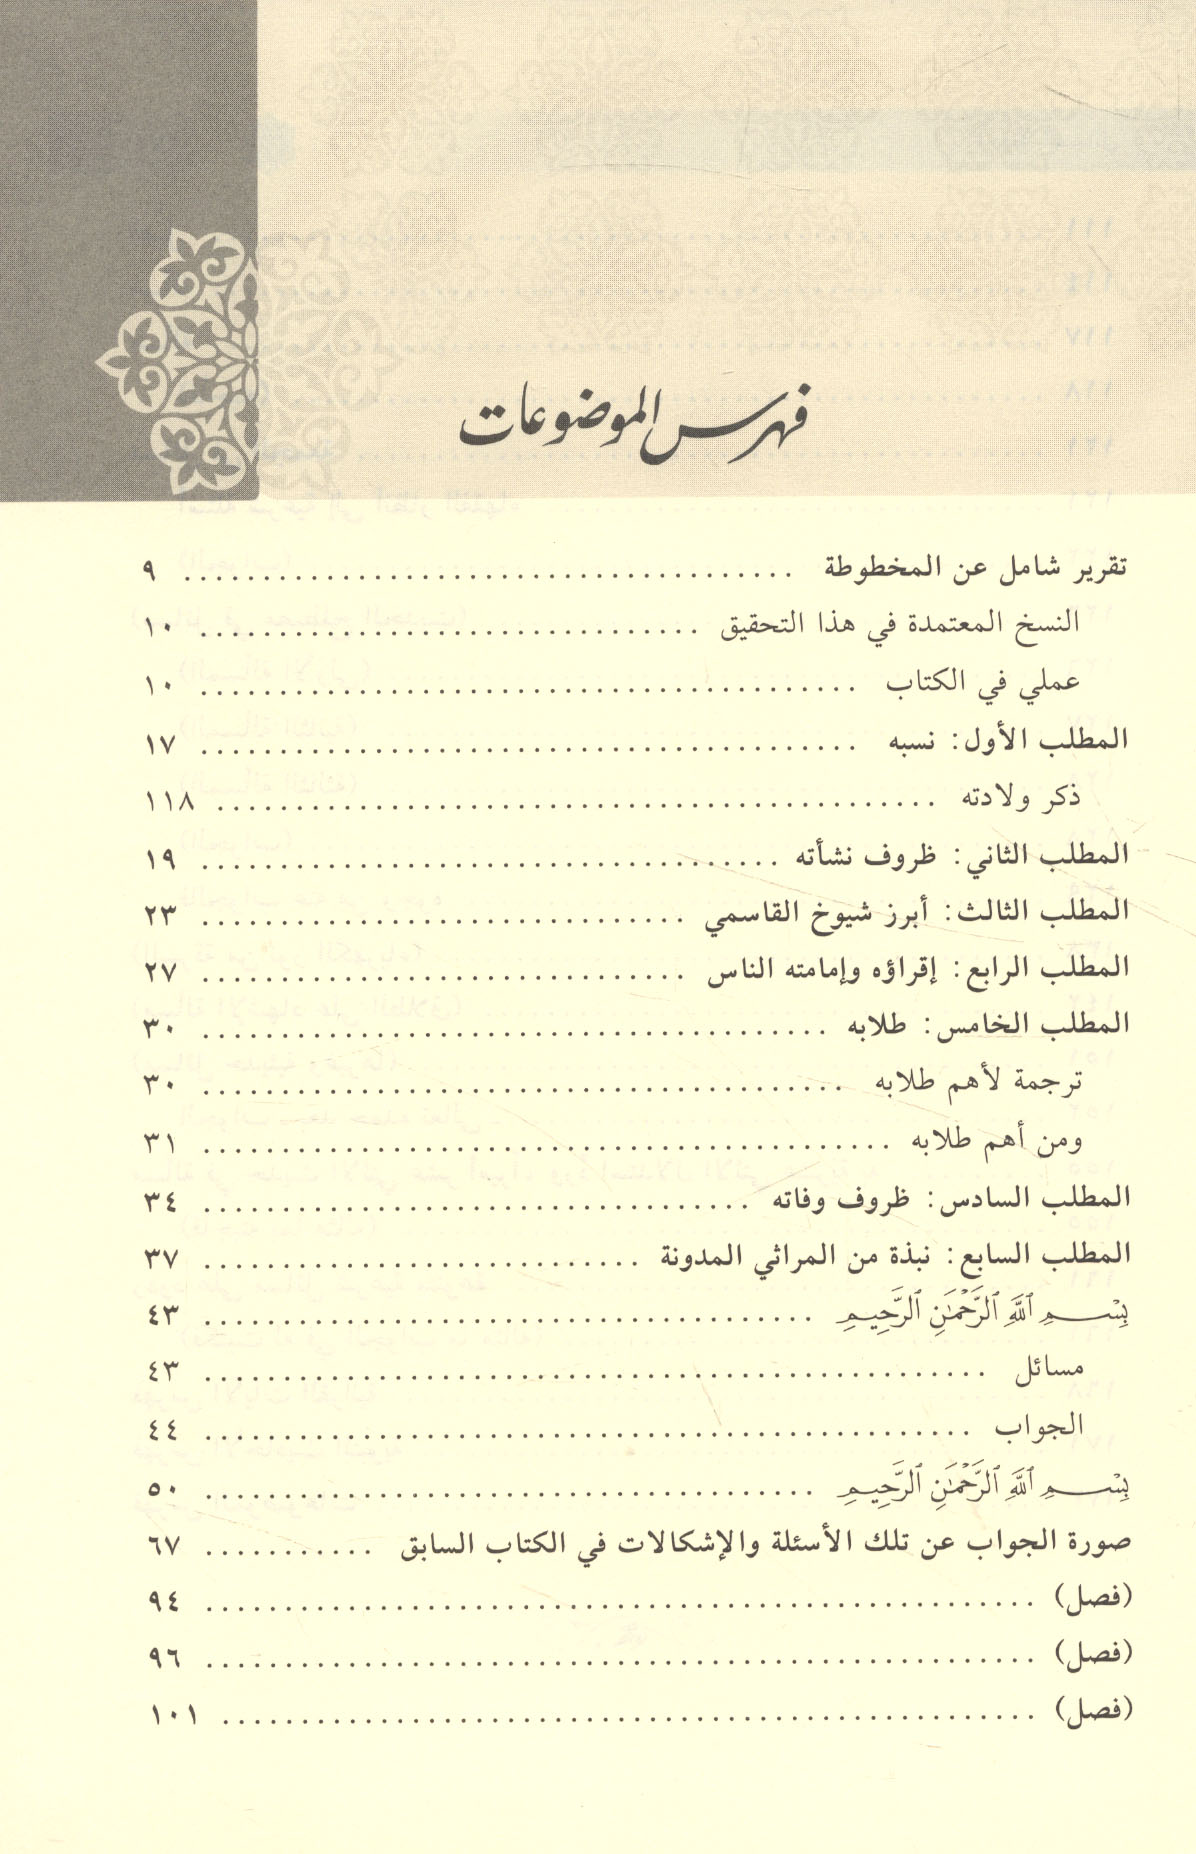 فهرس الموضوعات
تقرير شامل عن المخطوطة ........................................ ٩
النسخ المعتمدة في هذا التحقيق ................................ ١٠
عملي في الكتاب ........................................... ١٠
المطلب الأول: نسبه ........................................... ١٧
ذكر ولادته ............................................... ١١٨
المطلب الثاني: ظروف نشأته ...................................... ١٩
المطلب الثالث: أبرز شيوخ القاسمي ................................ ٢٣
المطلب الرابع: إقراؤه وإمامته الناس ................................ ٢٧
المطلب الخامس: طلابه ......................................... ٣٠
ترجمة لأهم طلابه .......................................... ٣٠
ومن أهم طلابه ............................................. ٣١
المطلب السادس: ظروف وفاته .................................... ٣٤
المطلب السابع: نبذة من المراثي المدونة ............................. ٣٧
بِسْمِ ٱللَّهِ ٱلرَّحْمَٰنِ ٱلرَّحِيمِ ........................................ ٤٣
مسائل ................................................... ٤٣
الجواب .................................................. ٤٤
بِسْمِ ٱللَّهِ ٱلرَّحْمَٰنِ ٱلرَّحِيمِ ........................................ ٥٠
صورة الجواب عن تلك الأسئلة والإشكالات في الكتاب السابق ........... ٦٧
(فصل) ...................................................... ٩٤
(فصل) ...................................................... ٩٦
(فصل) ..................................................... ١٠١